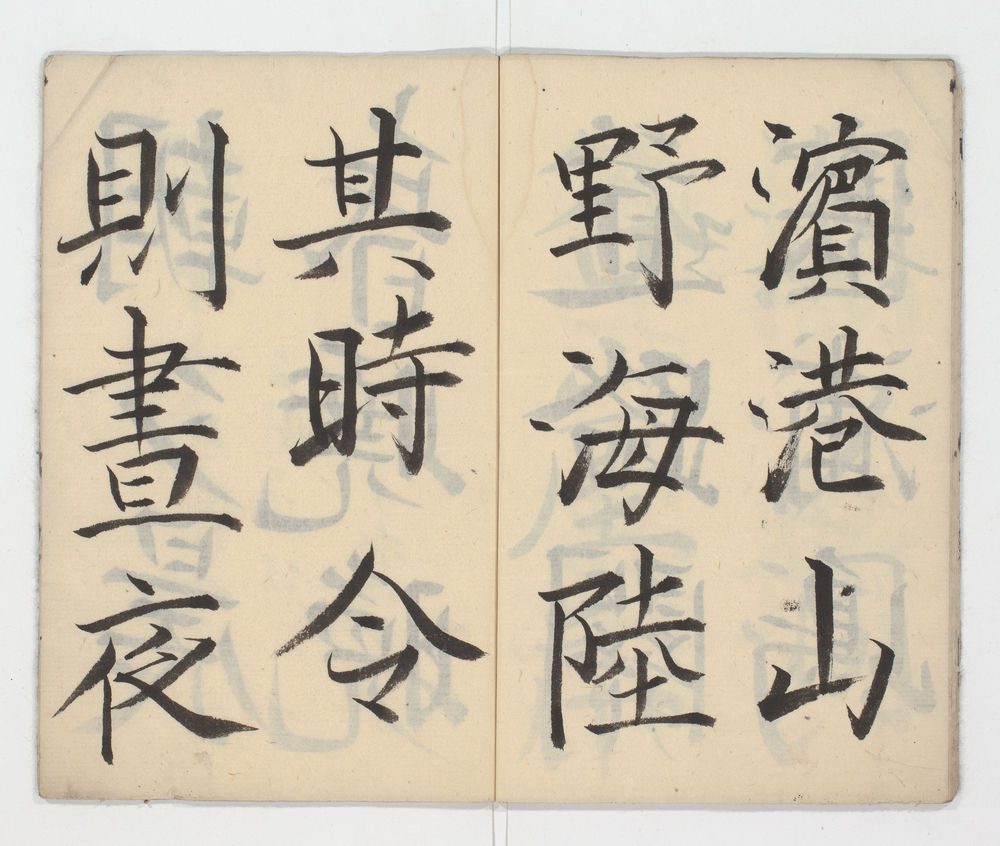 濱港山
野海陸
其時令
則晝夜